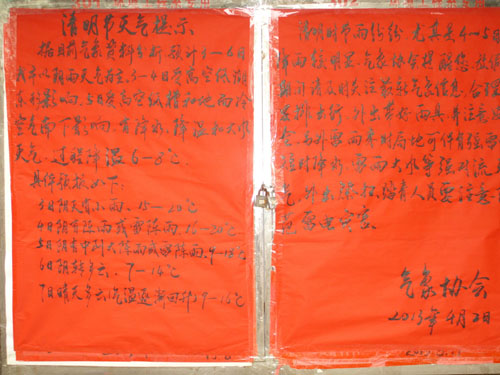 清明节天气提示
据目前气象资料分析，预计3-6日
我市以阴雨天气为主，3-4日受高空低槽
东移影响，5日受高空低槽和地面冷
空气南下影响，有降水、降温和大风
天气，过程降温6-8℃
具体预报如下：
3日阴天有小雨，15-20℃
4日阴有阵雨或雷阵雨，16-20℃
5日阴有中到大阵雨或雷阵雨，9-13℃
6日阴转多云，7-14℃
7日晴天多云气温逐渐回升，7-16℃
清明时节雨纷纷，尤其是4-5日
降雨较明显，气象协会提醒您，
期间请及时关注最新气象信息，合理
安排出行，外出带好雨具并注意
全，另外雷雨来时局地可伴有强雷
短时降水、雷雨大风等强对流天
气，外出
意
气象协会
2013年4月2日